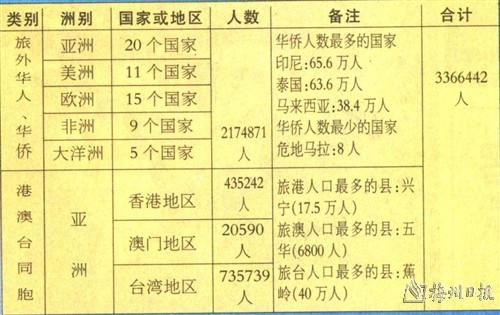 类别 洲别 国家或地区 人数 备注 合计
旅外华人、华侨
亚洲 20个国家
美洲 11个国家
欧洲 15个国家
非洲 9个国家
大洋洲 5个国家
2174871
人
华侨人数最多的国家
印尼:65.6万人
泰国:63.6万人
马来西亚:38.4万人
华侨人数最少的国家
危地马拉:8人
3366442
人
港澳台同胞
亚洲
香港地区 435242
人
澳门地区 20590
人
台湾地区 735739
人
旅港人口最多的县:兴
宁(17.5万人)
旅澳人口最多的县:五
华(6800人)
旅台人口最多的县:蕉
岭(40万人)
梅州日报